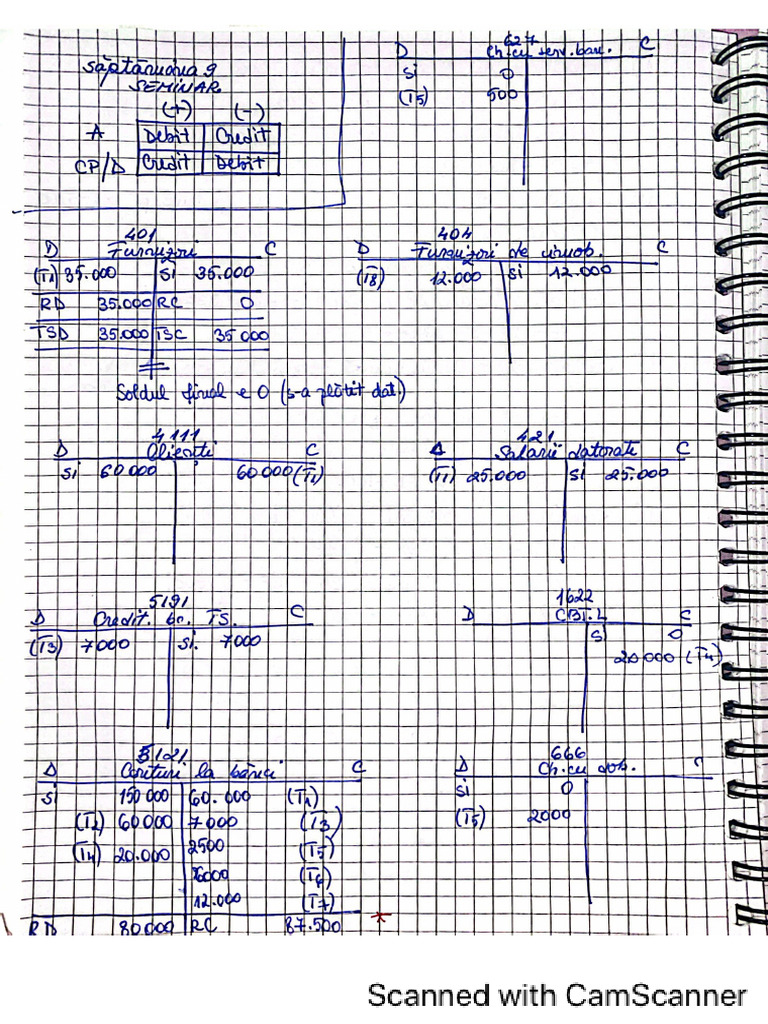 Săptămâna 9
SEMINAR
(+) (-)
A Debit Credit
CP/D Credit Debit
627
D Ch.cu serv.banc. C
Si 0
(T5) 500
401
D Furnizori C
(T1) 35.000 Si 35.000
RD 35.000 RC 0
TSD 35.000 TSC 35 000
Soldul final e 0 (s-a plătit dat.)
404
D Furnizori de imob. C
(T8) 12.000 Si 12.000
4111
D Clienți C
Si 60000 60000 (T2)
421
D Salarii datorate C
(T1) 25.000 Si 25.000
5191
D Credit. bc. TS. C
(T3) 7000 Si. 7000
1622
D CBTL C
Si 0
20000 (T4)
5121
D Conturi la bănci C
Si 150 000 60.000 (T1)
(T2) 60000 7000 (T3)
(T4) 20.000 2500 (T5)
6000 (T6)
12.000 (T7)
RD 80000 RC 87.500 *
666
D Ch.cu dob. C
Si 0
(T5) 2000
Scanned with CamScanner